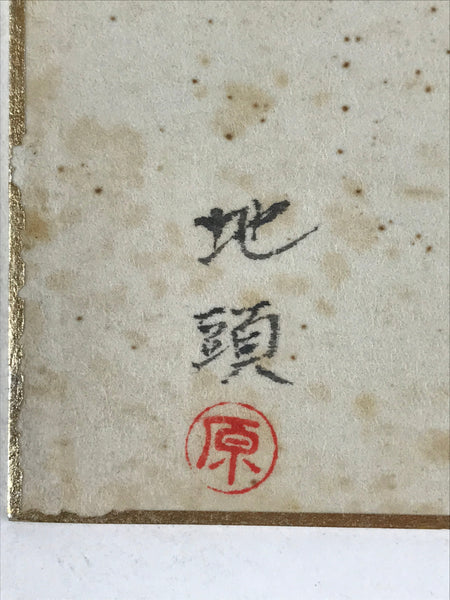 地頭
原